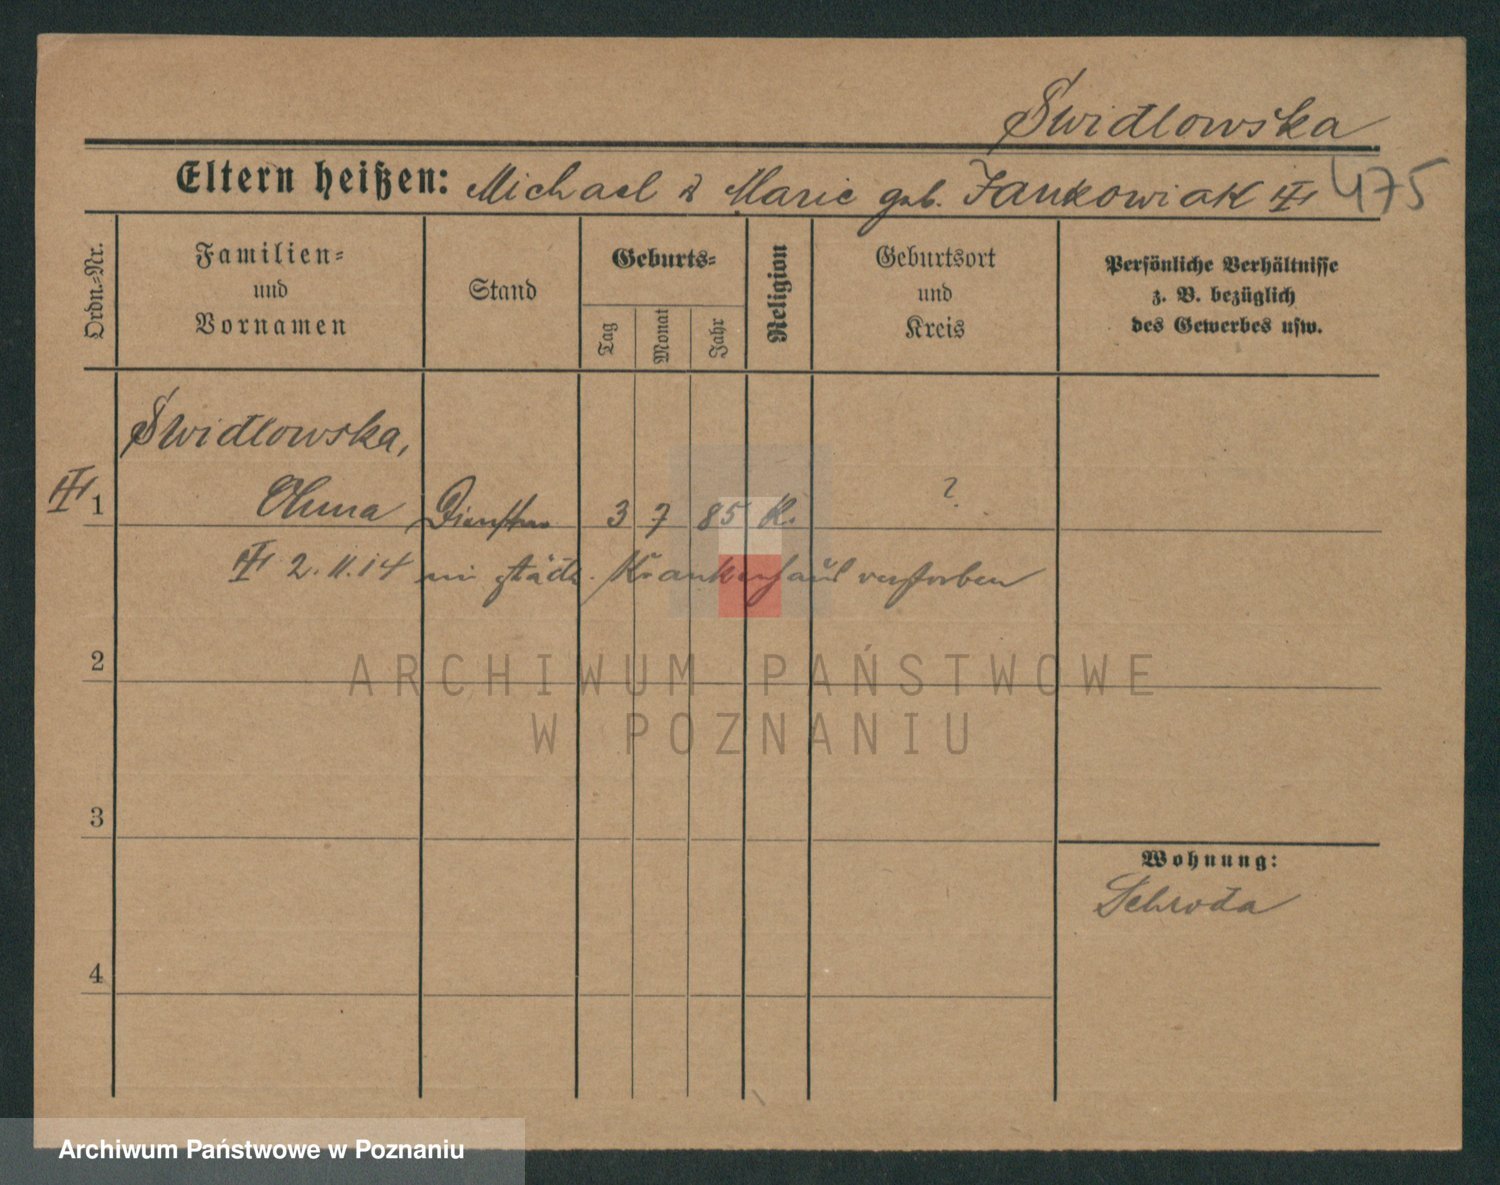 Swidlowska
Eltern heißen: Michael & Marie geb. Jankowiak 475
Ordn.-Nr.
Familien- und Vornamen
Stand
Geburts-
Tag
Monat
Jahr
Religion
Geburtsort und Kreis
Persönliche Verhältnisse z. B. bezüglich des Gewerbes usw.
Swidlowska,
1 Dienstm. 3 7 85 K. ?
2.11.14 im städt. Krankenhaus verstorben
2
3
4
Wohnung:
Schroda
ARCHIWUM PAŃSTWOWE
W POZNANIU
Archiwum Państwowe w Poznaniu